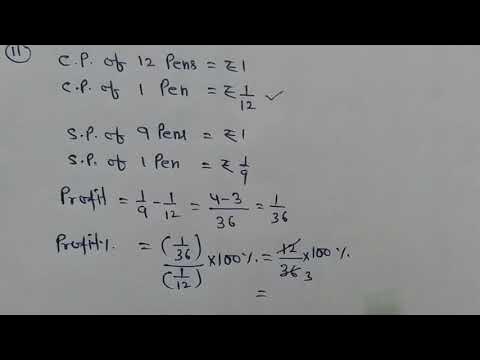 11
C.P. of 12 Pens = ₹1
C.P. of 1 Pen = ₹1/12 ✓
S.P. of 9 Pens = ₹1
S.P. of 1 Pen = ₹1/9
Profit = 1/9 - 1/12 = 4-3/36 = 1/36
Profit% = (1/36)/(1/12) × 100% = 12/36 3 × 100%
=